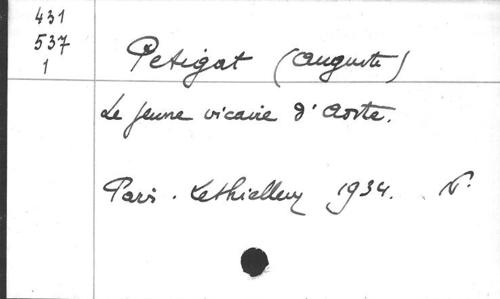 431
537
1
Petigat (Auguste)
Le jeune vicaire d'Aoste.
Paris. Lethielleux 1934.